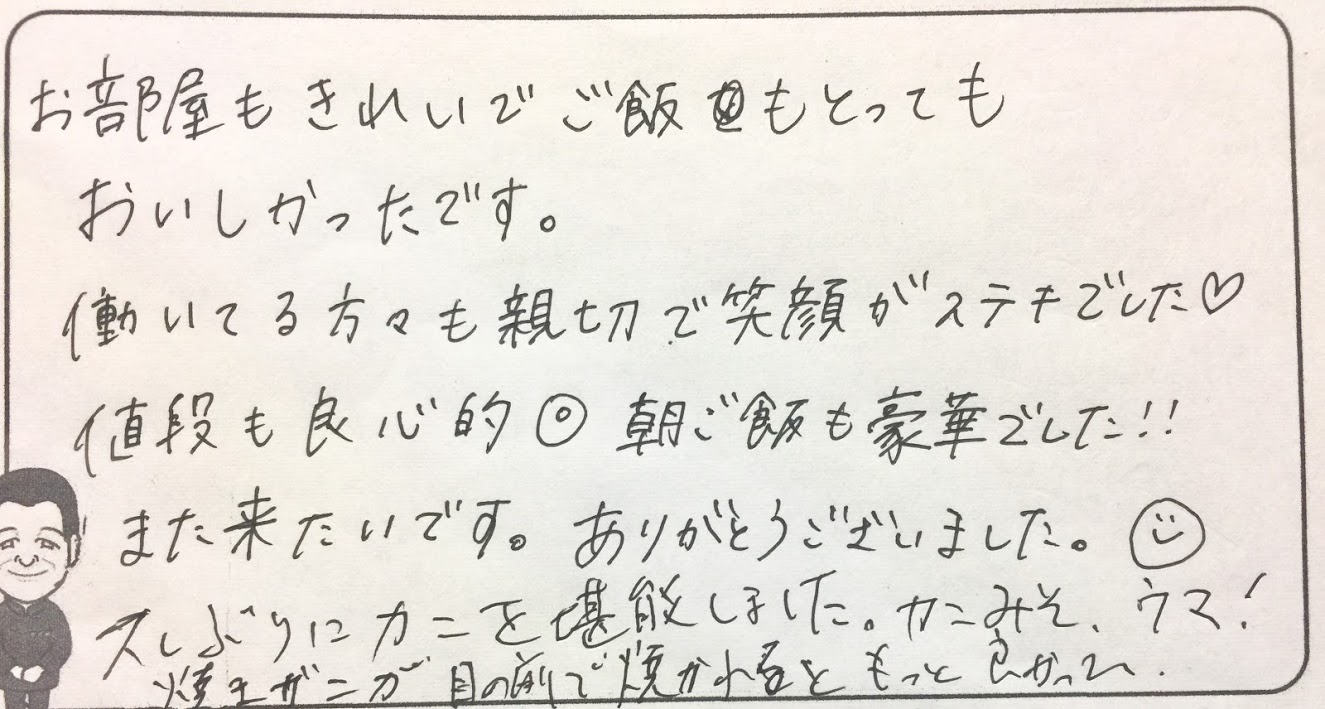 お部屋もきれいでご飯もとっても
おいしかったです。
働いてる方々も親切で笑顔がステキでした♡
値段も良心的◎ 朝ご飯も豪華でした!!
また来たいです。ありがとうございました。
久しぶりにカニを堪能しました。カニみそ、ウマ!
焼きガニが目の前で焼かれると もっと良かった。